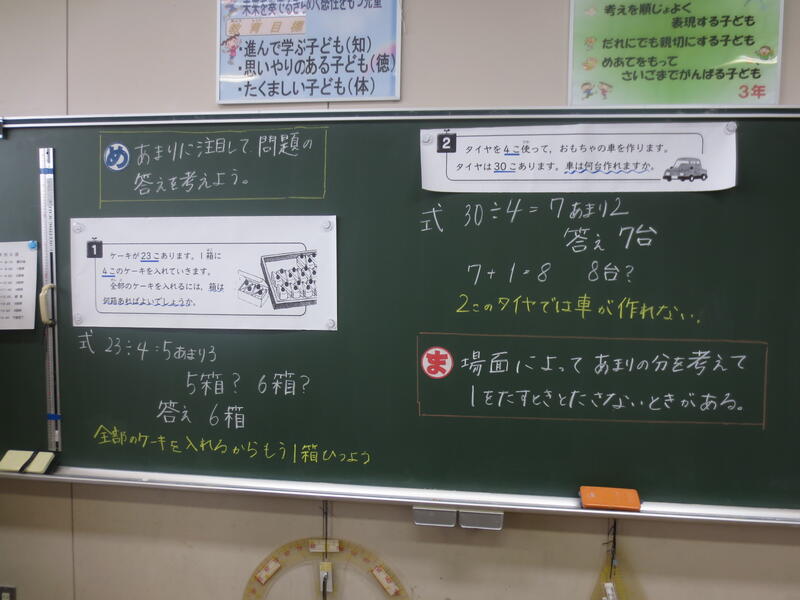 未来を奏でるきらめく感性をもつ児童
教育目標
・進んで学ぶ子ども(知)
・思いやりのある子ども(徳)
・たくましい子ども(体)
考えを順じょよく
表現する子ども
だれにでも親切にする子ども
めあてをもって、
さいごまでがんばる子ども
3年
め あまりに注目して問題の
答えを考えよう。
1
ケーキが23こあります。1箱に
4こずつケーキを入れていきます。
全部のケーキを入れるには、箱は
何箱あればよいでしょうか。
式 23÷4=5あまり3
5箱? 6箱?
答え 6箱
全部のケーキを入れるからもう1箱ひつよう
2
タイヤを4こ使って、おもちゃの車を作ります。
タイヤは30こあります。車は何台作れますか。
式 30÷4=7あまり2
答え 7台
7+1=8 8台?
2このタイヤでは車が作れない。
ま 場面によってあまりの分を考えて
1をたすときとたさないときがある。